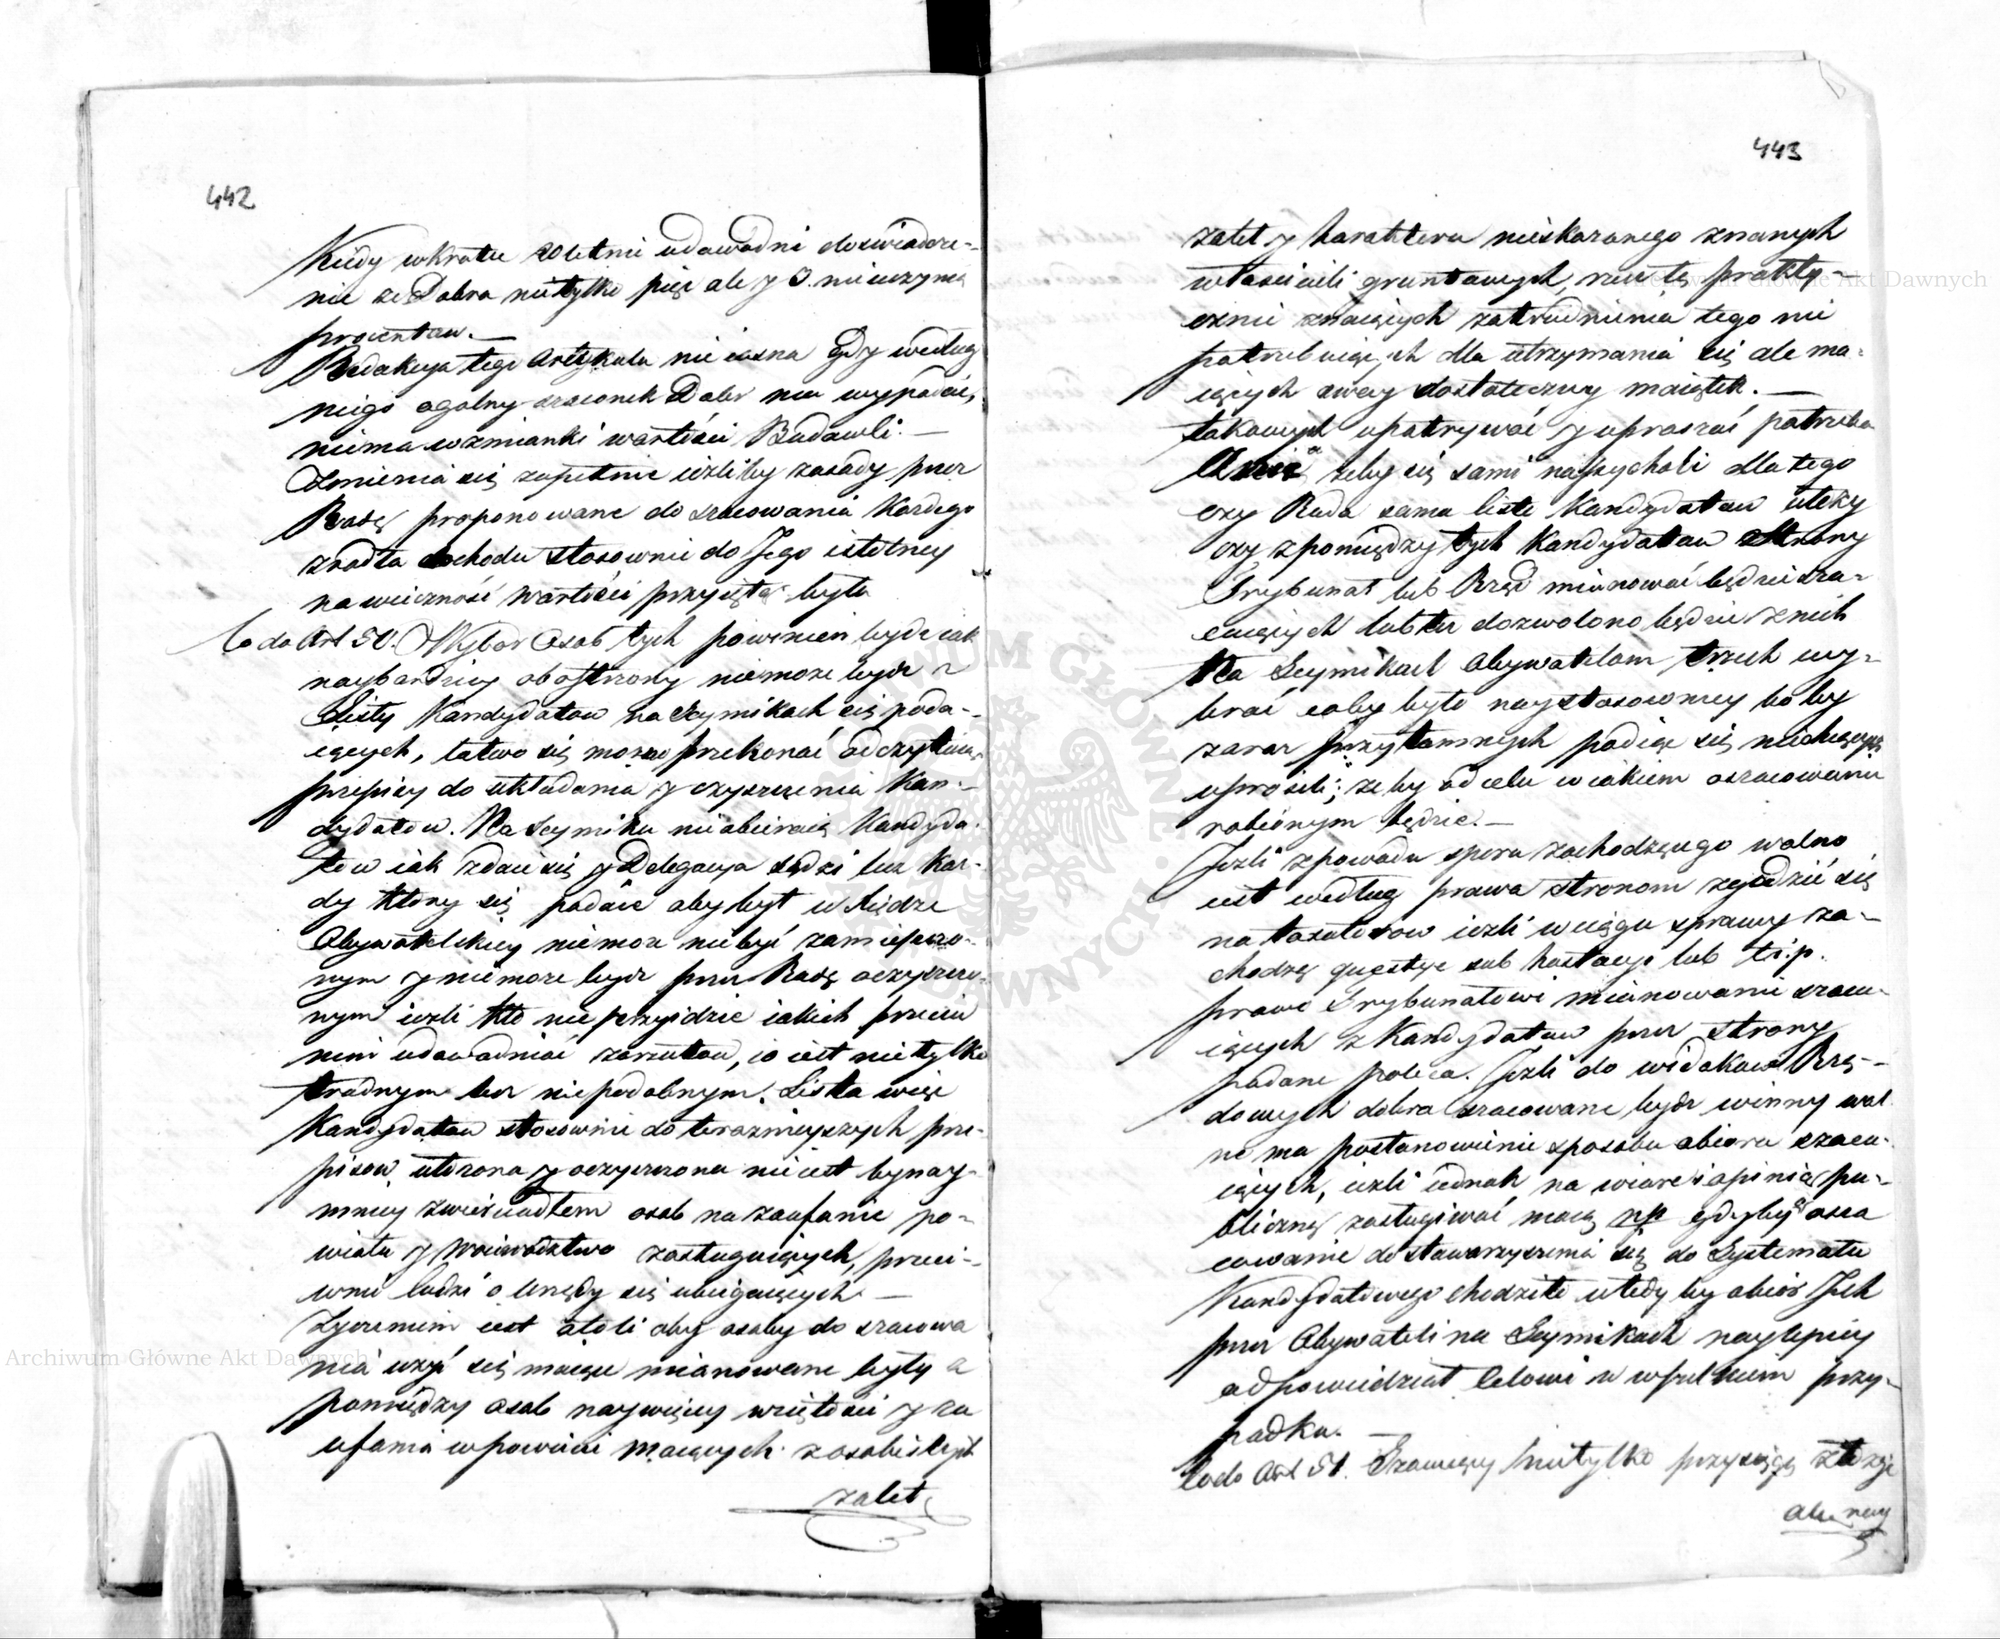 442
Kiedy wkrotce 20 letnie udowodni doswiadcze-
nie ze Dobra nietylko pięc ale y 6. nieuczynią
procentow. —
Redakcya tego Artykułu nie iasna Gdy według
niego ogolny szacunek Dobr ma wypadać,
niema wzmianki wartości Budowli. —
Zmienia się zupełnie iezliby zasady przez
Radę proponowane do szacowania Kazdego
zrodła dochodu stosownie do Jego istotney
na wieczność wartości przyięta była
Co do Art 50. Wybor Osob tych powinien bydz iak
naybardziey obostrzony niemoze bydz z
Listy Kandydatow na Seymikach się poda-
iących, łatwo się mozno przekonać odczytuiąc
przepisy do układania y czyszczenia Kan-
dydatow. Na Seymiku nieobieraią Kandyda-
tow iak zdaie się y Delegacya sądzi lecz Kaz-
dy Ktory się podaie aby był w Xiędze
Obywatelskiey niemoze niebyć zamieszczo-
nym y niemoze bydz przez Radę oczyszczo-
nym iezli Kto nie przyidzie iakich przeciw
niemu udowadniać zarzutow, co iest nietylko
trudnym lecz niepodobnym. Lista więc
Kandydatow stosownie do terazmieyszych prze-
pisow, ułozona y oczyszczona nie iest bynay-
mniey zwierciadłem osob na zaufanie po-
wiatu y Woiewodztwa zasługuiących, przeci-
wnie ludzi o Urzędy się ubiegaiących —
Zyczeniem iest atoli aby osoby do szacowa
nia uzyć się maiące mianowane były z
pomiędzy Osob naywięcey wziętości y za
ufania w powiecie maiących z osobistych
zalet
443
zalet y harakteru nieskazonego znanych
właścicieli gruntowych, rzecz tę prakty-
cznie znaiących zatrudnienia tego nie
potrzebuiących dla utrzymania się ale ma-
iących swoy dostateczny maiątek. —
takowych upatrywać y upraszać potrzeba
a zeby się sami napychali dla tego
czy Rada sama listę Kandydatow ułozy
czy z pomiędzy tych Kandydatow Strony
Trybunał lub Rząd mianować będzie sza-
cuiących lub tez dozwolono będzie z nich
Na Seymikach Obywatelom trzech wy-
brać coby było naystosowniey bo by
zaraz przytomnych podiąc się niechcących
uprosili; zeby od celu w iakiem oszacowanie
robionym będzie. —
Jezli z powodu sporu zachodzącego wolno
iest według prawa stronom zgodzić się
na taxatorow iezli w ciągu sprawy za-
chodzą questye sub hastacyi lub t: i. p.
prawo Trybunałowi mianowanie szacu-
iących z Kandydatow przez strony
podane poleca. Jezli do widokow Rzą-
dowych dobra szacowane bydz winny wol
ne ma postanowienie sposobu obioru szacu-
iących, iezli iednak na wiarę i opinią pu-
bliczną zasługiwać maią np gdyby o osza
cowanie do stowarzyszenia się do Systematu
Kredytowego chodziło wtedy by obior Jch
przez Obywateli na Seymikach naylepiey
odpowiedział Celowi w wszelkiem przy-
padku. —
Co do Art 51. Szacuiący nietylko przysięgę złozyć
ale nay